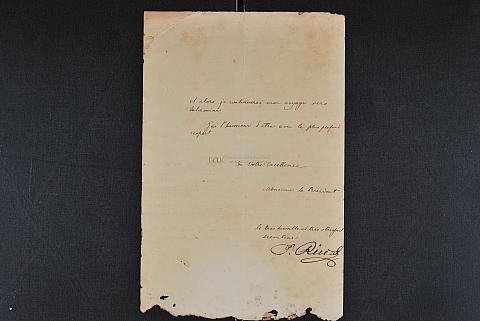 et alors je continuerai mon voyage vers
j'ai l'honneur d'être avec le plus profond
respect
de votre Excellence
Monsieur le Président
le très humble et très obéissant
serviteur